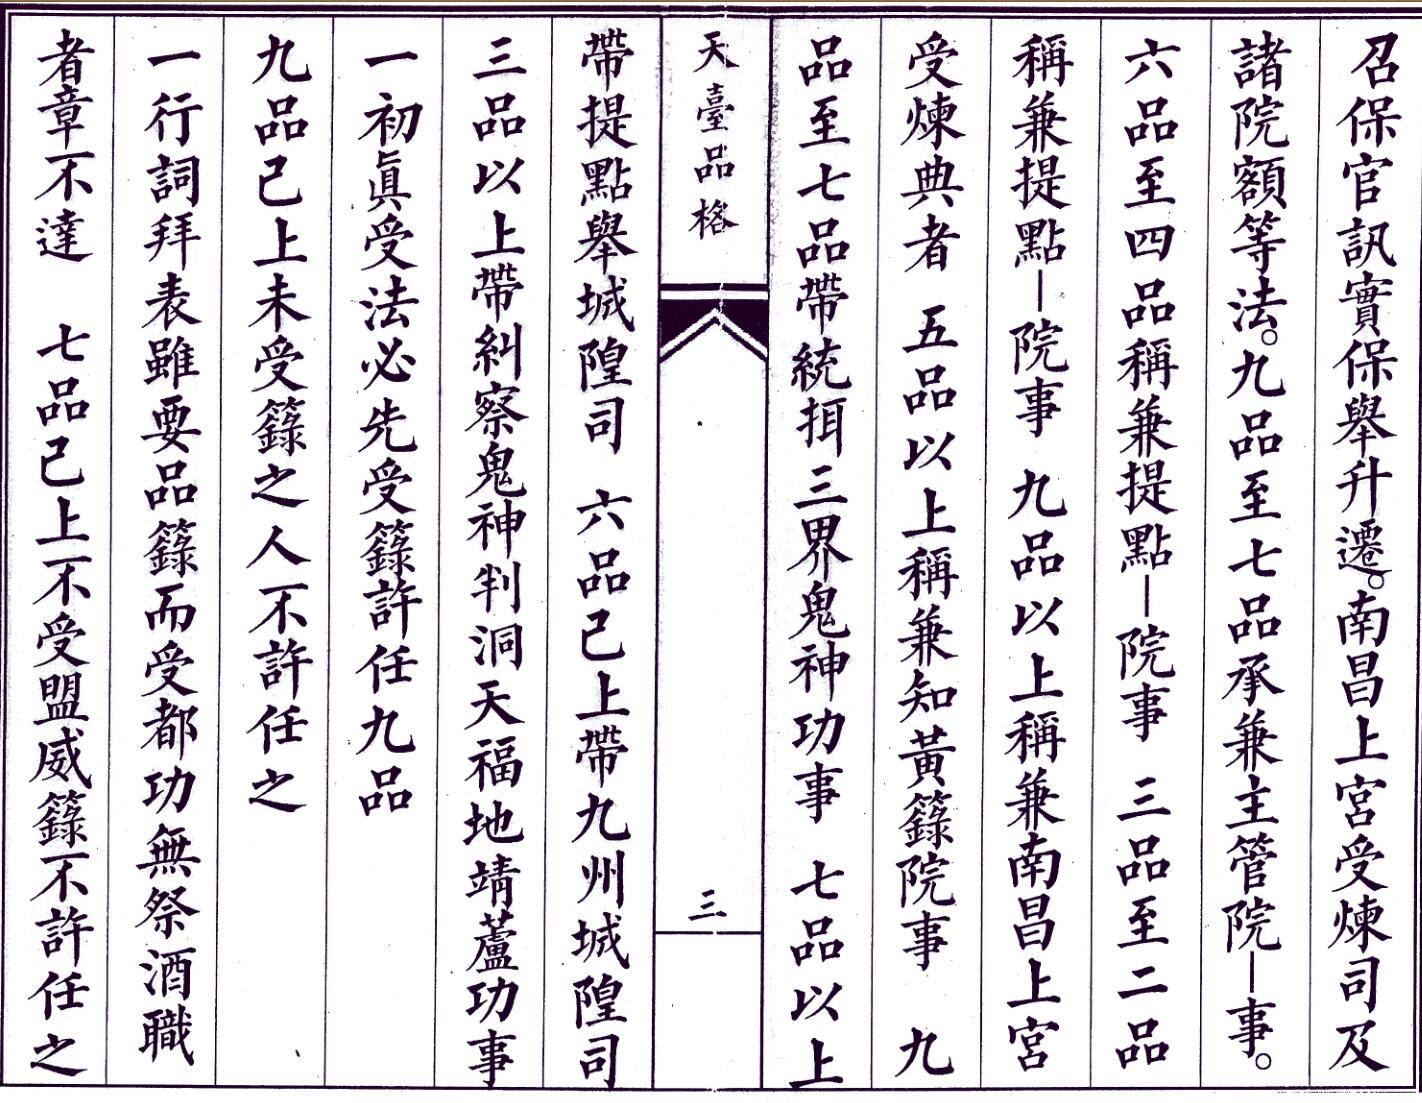 召保官訊實保舉升遷。南昌上宮受煉司及
諸院額等法。九品至七品承兼主管院｜事。
六品至四品稱兼提點｜院事　三品至二品
稱兼提點｜院事　九品以上稱兼南昌上宮
受煉典者　五品以上稱兼知黃籙院事　九
品至七品帶統押三界鬼神功事　七品以上
天臺品格
三
帶提點舉城隍司　六品己上帶九州城隍司
三品以上帶糾察鬼神判洞天福地靖蘆功事
一初眞受法必先受籙許任九品
九品己上未受籙之人不許任之
一行詞拜表雖要品籙而受都功無祭酒職
者章不達　七品己上不受盟威籙不許任之